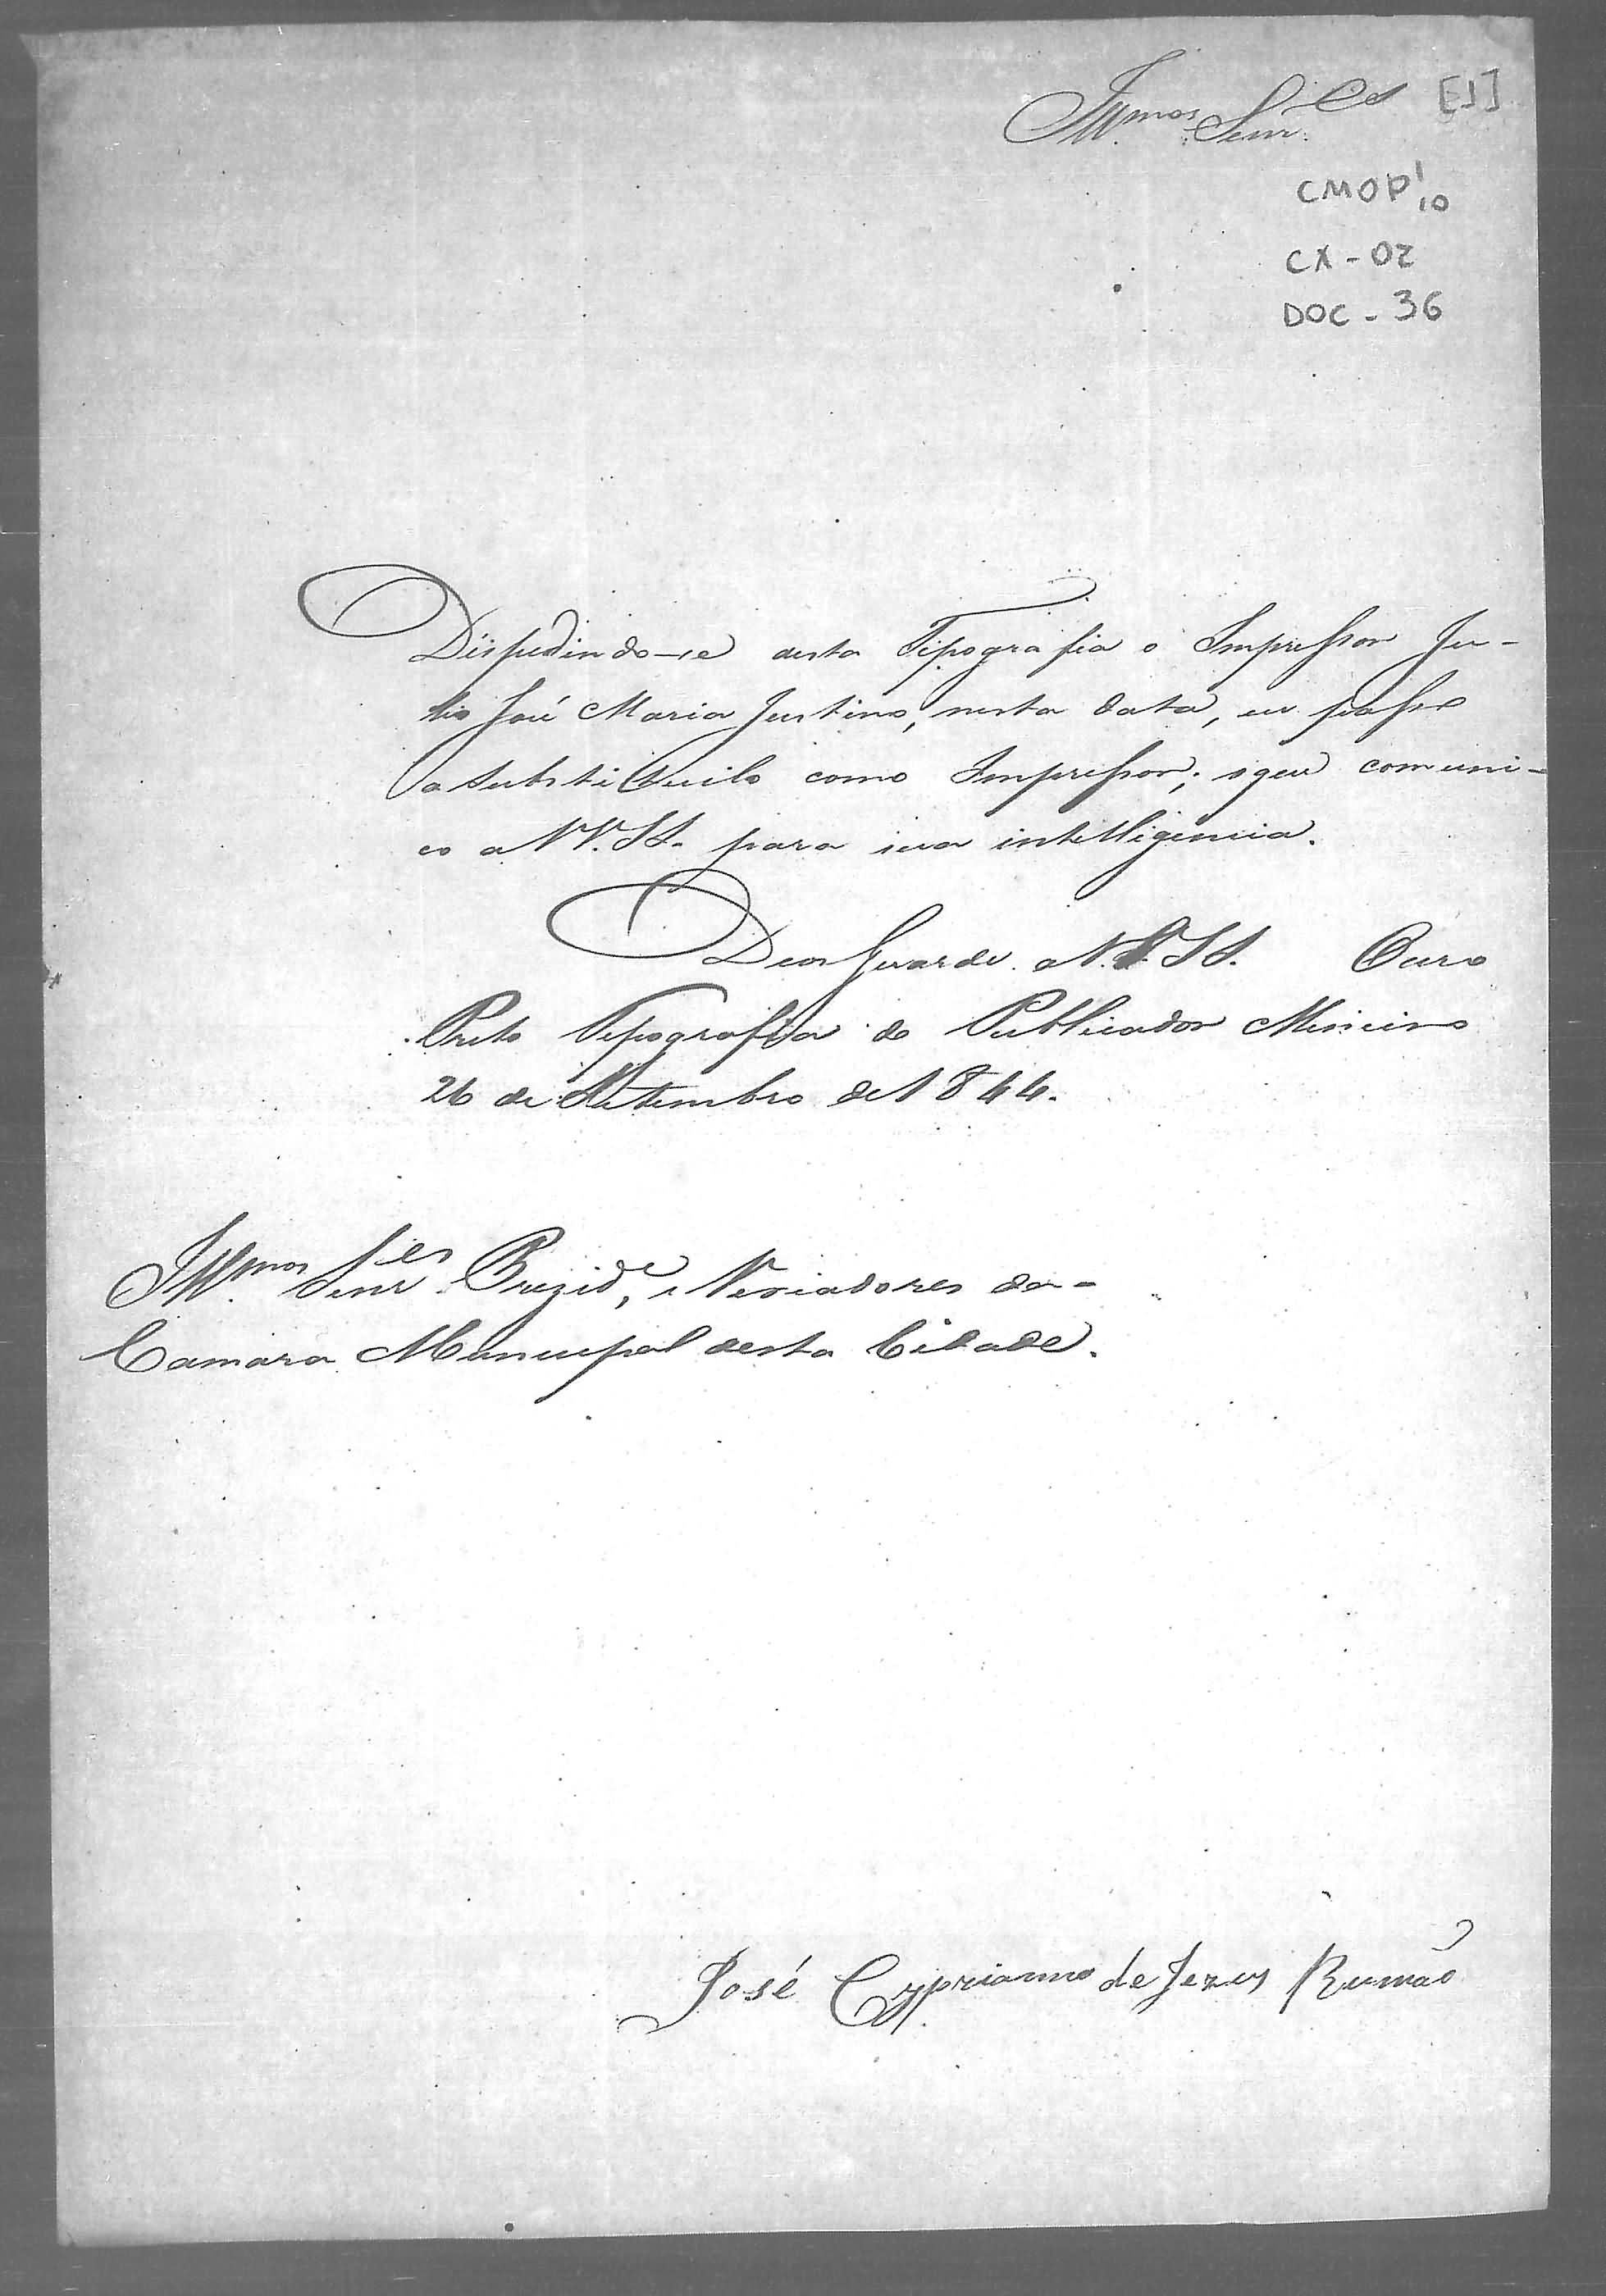 Illmos. Senr.es [1]
CMOP 1/10
CX - 02
DOC - 36
Dispedindo-se desta Tipografia o Impressor Ju-
lio José Maria Justino, nesta data, eu passo
a substituilo como Impressor; oque comuni-
co a VV. SS. para sua intelligencia.
Deos Guarde a V.V. SS. Ouro
Preto Tipografia do Publicador Mineiro
26 de Setembro de 1844.
Illmos. Senr.es Prezid.e, e Veriadores da
Camara Municipal desta Cidade.
José Cyprianno de Jezus Rumão